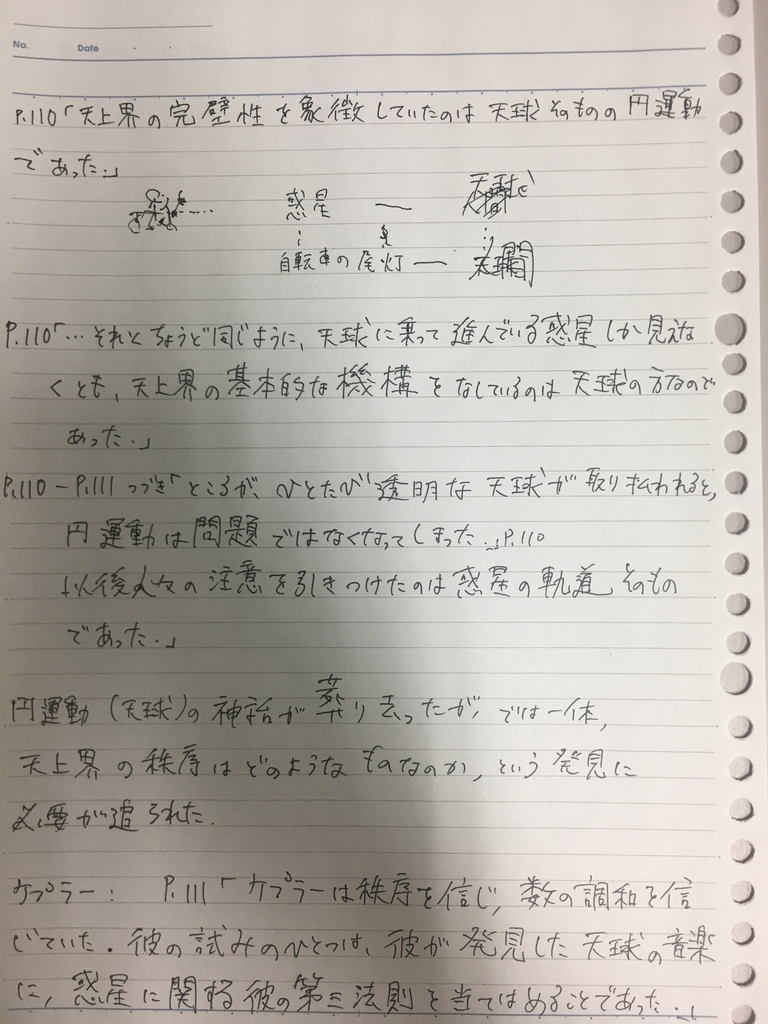 No. Date
P.110「天上界の完璧性を象徴していたのは天球そのものの円運動
であった。」
惑星 ー
自転車の尾灯 ー
P.110「…それとちょうど同じように、天球に乗って進んでいる惑星しか見えな
くとも、天上界の基本的な機構をなしているのは天球の方なので
あった。」
P.110-P.111つづき「ところが、ひとたび透明な天球が取り払われると、
円運動は問題ではなくなってしまった。」P.110
以後人々の注意を引きつけたのは惑星の軌道そのもの
であった。」
円運動(天球)の神話が葬り去ったが、では一体、
天上界の秩序はどのようなものなのか、という発見に
必要が追られた.
ケプラー: P.111「ケプラーは秩序を信じ、数の調和を信
じていた.彼の試みのひとつは、彼が発見した天球の音楽
に、惑星に関する彼の第三法則を当てはめることであった.」